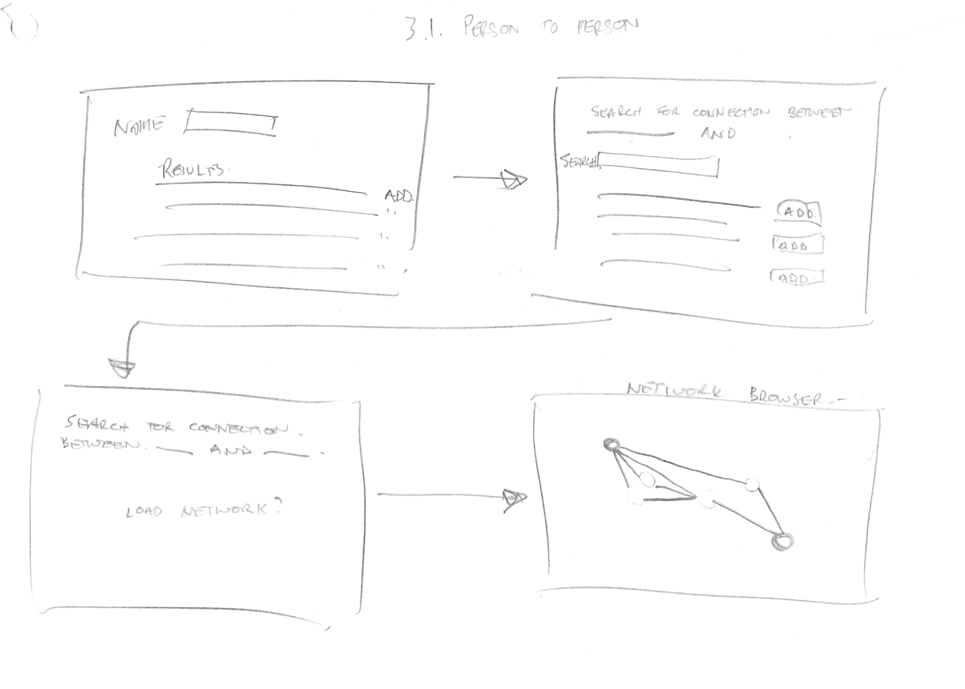 3.1. PERSON TO PERSON
NAME
RESULTS.
ADD.
"
"
"
SEARCH FOR CONNECTION BETWEEN
AND .
SEARCH
ADD.
ADD
ADD.
SEARCH FOR CONNECTION.
BETWEEN. AND .
LOAD NETWORK?
NETWORK BROWSER.-